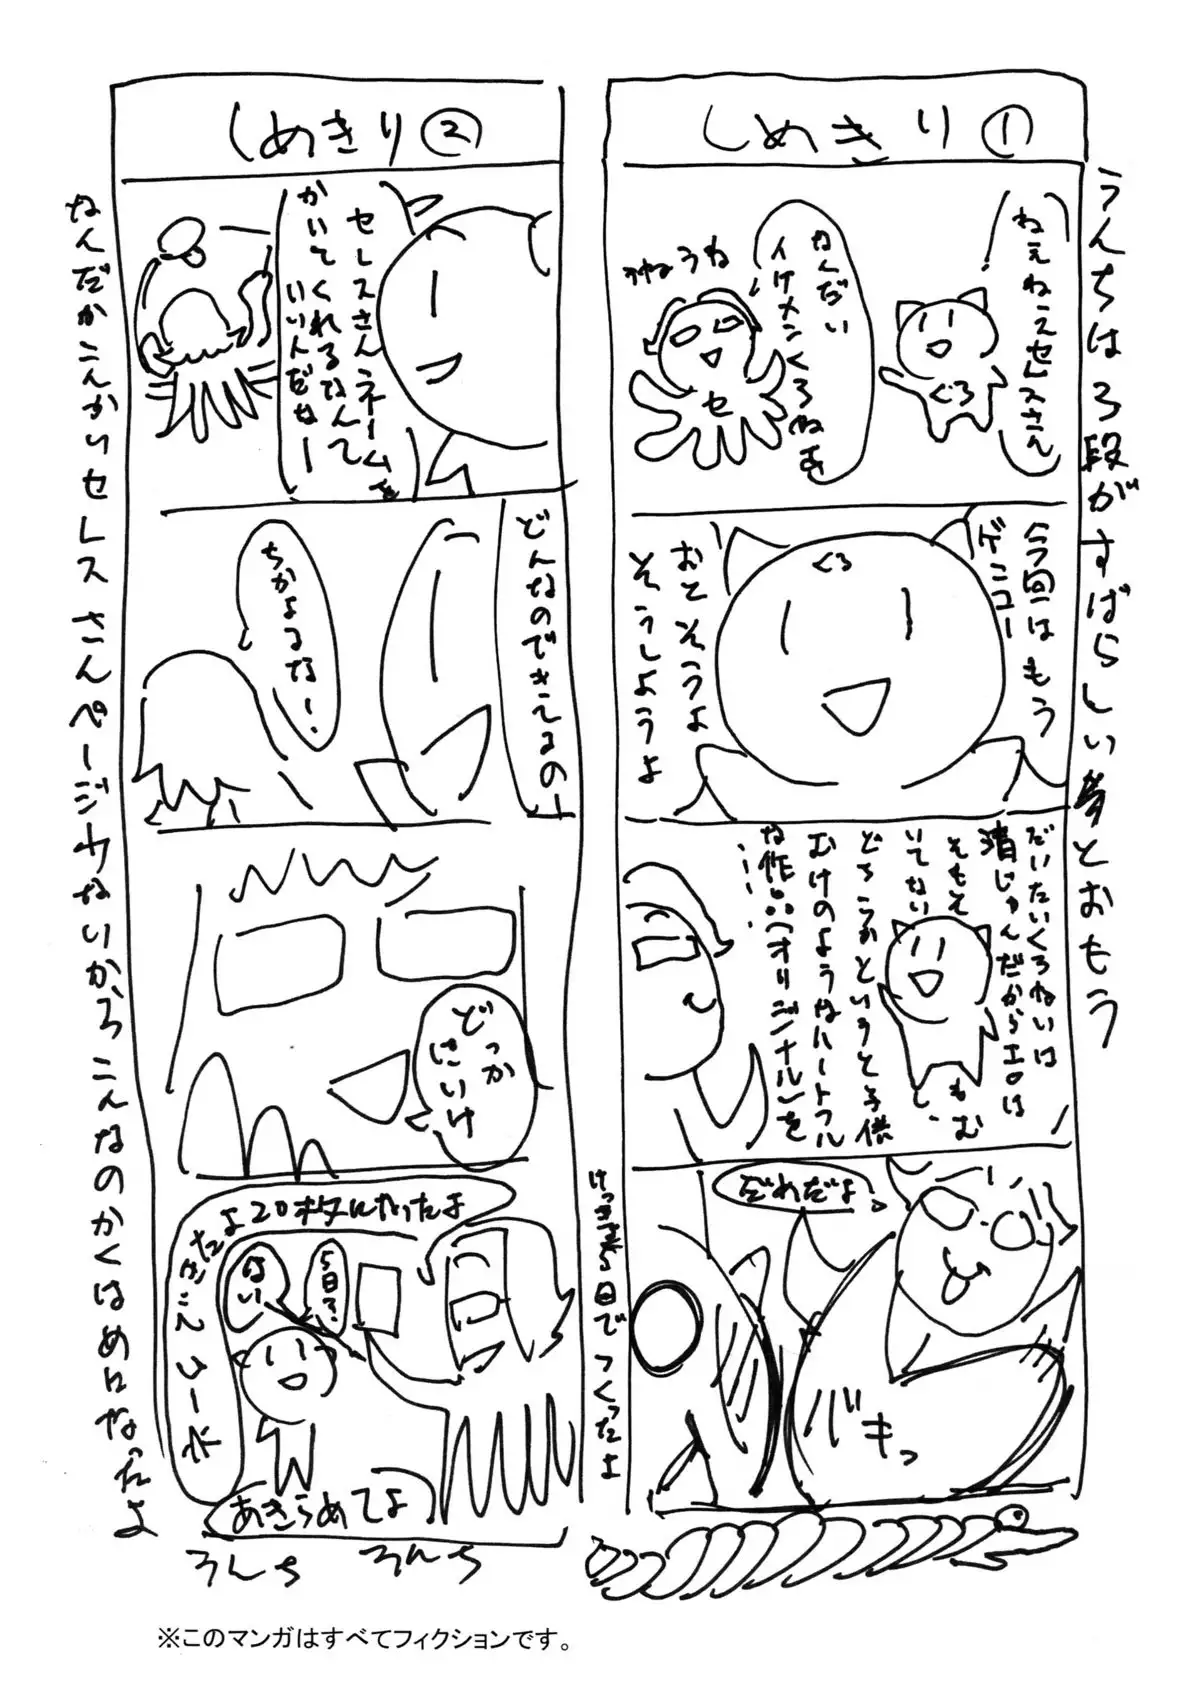 しめきり①
ねえねえセレスさん
なんだい
イケメンくろねゐ
うねうね
くろ
セ
今回はもう
ゲンコー
おとそうよ
そうしよう
くろ
だいたいくろねいは
漬じゅんだからエロは
そもそも
いてない
どちらかというと子供
むけのようなハートフル
な作品(オリジナル)を
……
だれだよ!
バキっ
うんちは3段がすばらしい
とおもう
けっきょく5日でつくったよ
しめきり②
セレスさんネームを
かいてくれるなんて
いいんだねー
どんなのできてるの
ちかよるなー!
どっか
にいけ
20枚になったよ
5日で?
はい
あきらめてよ
うんち
うんち
なんだかこんかいセレスさんページ少ないから
こんなのかくはめになったよ
※このマンガはすべてフィクションです。